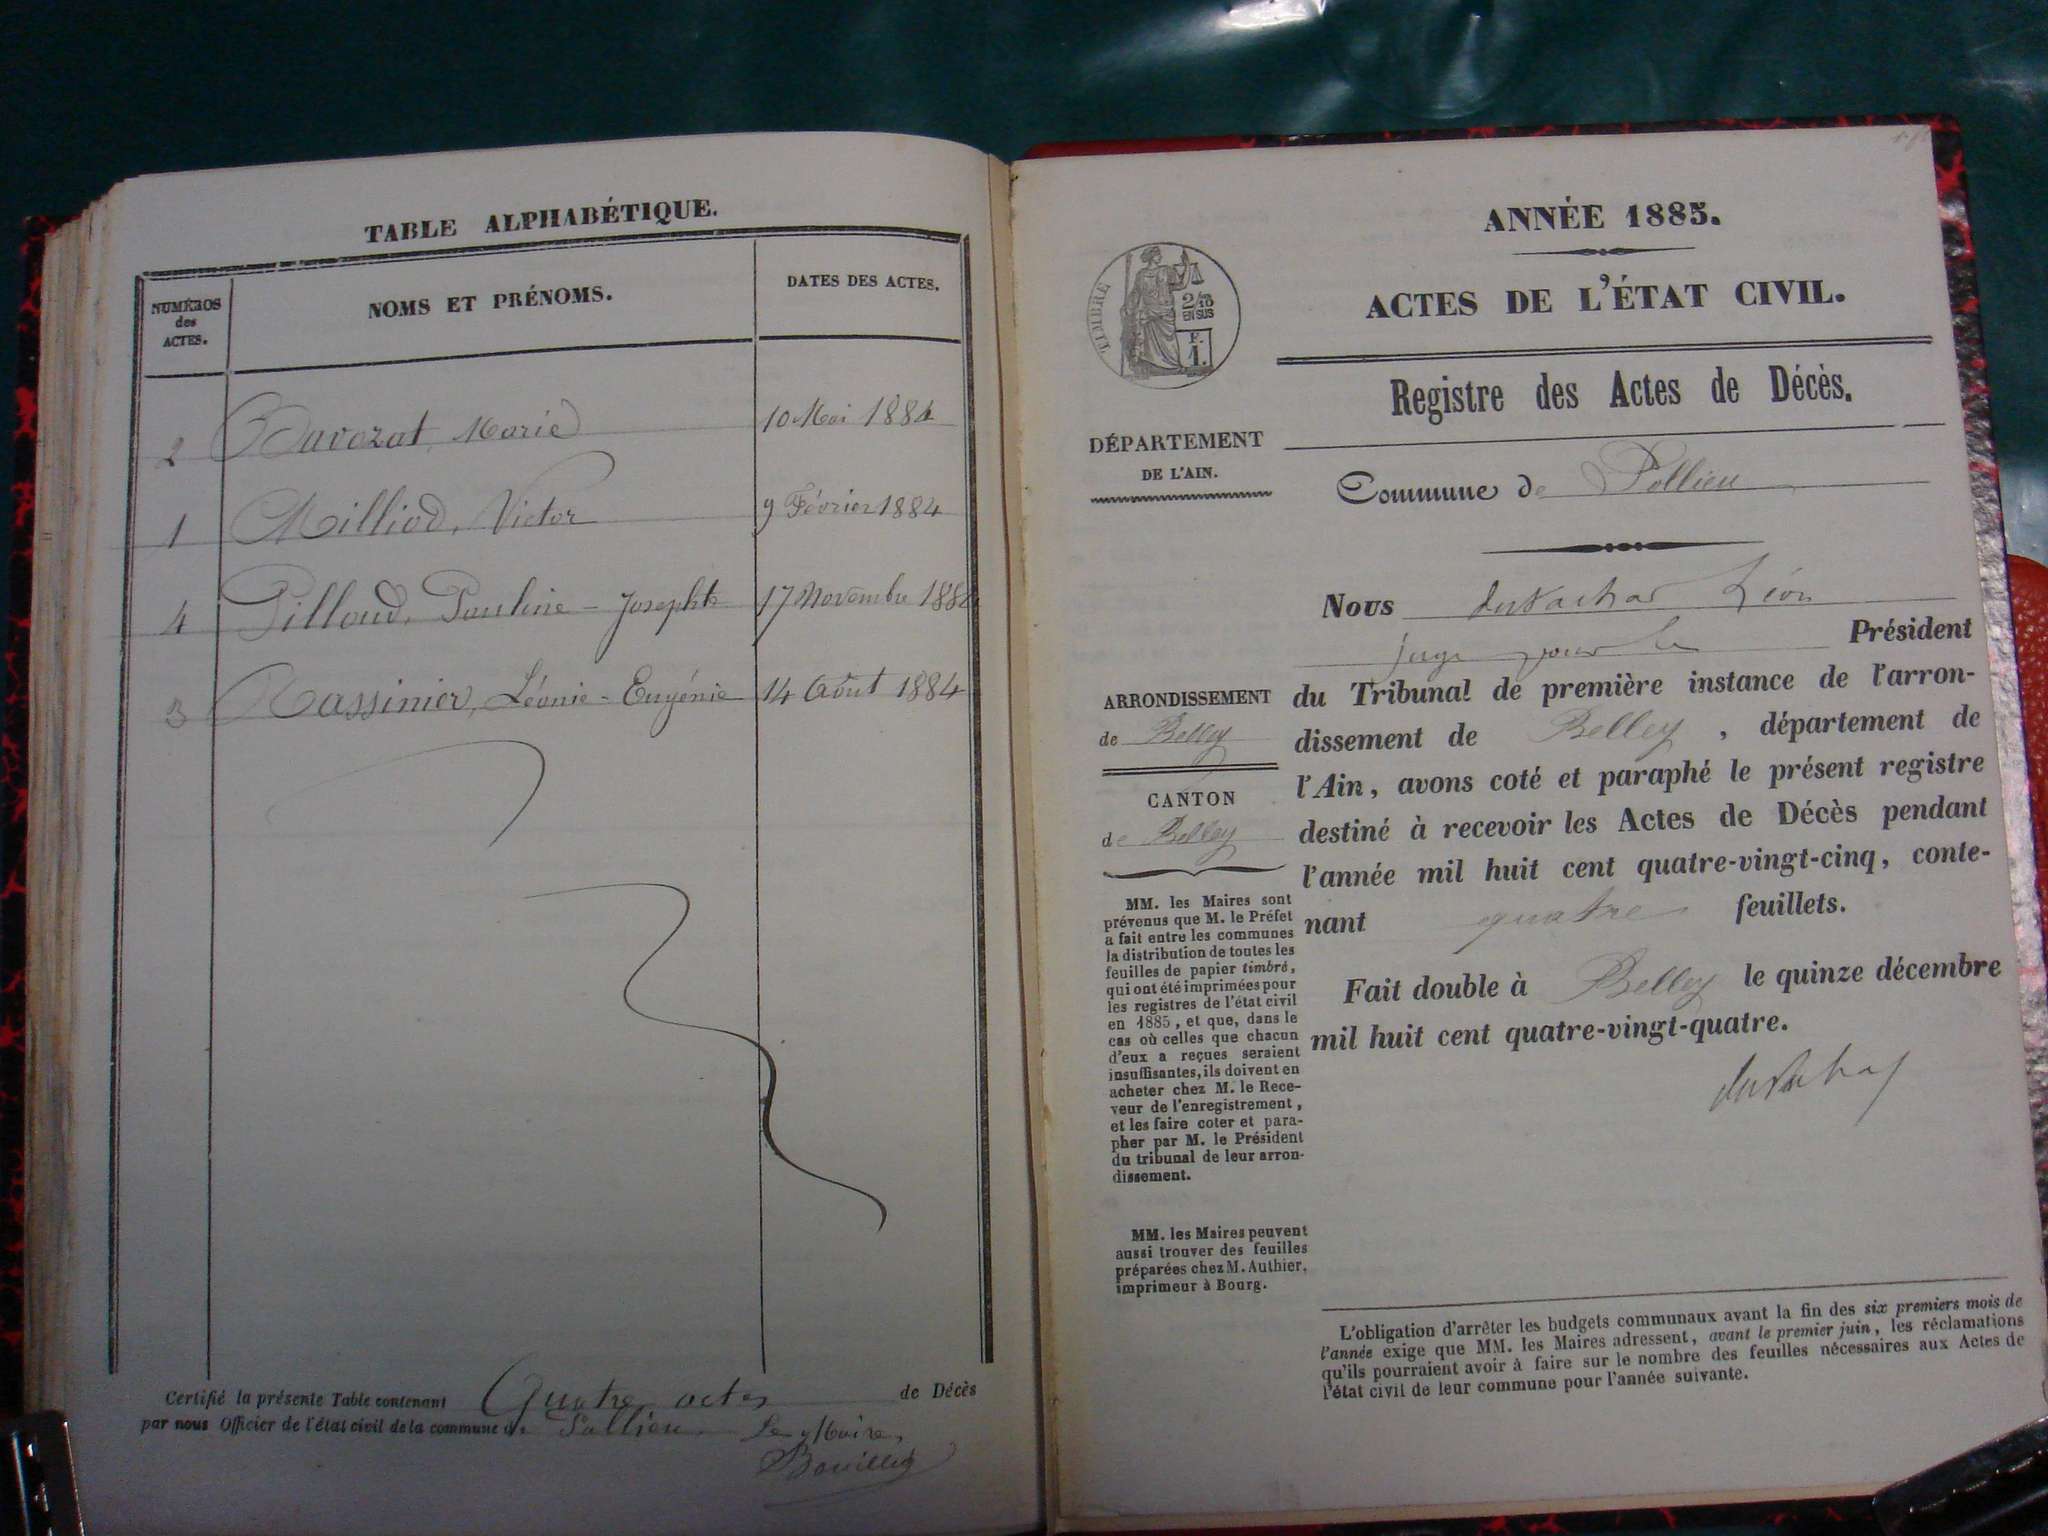 TABLE ALPHABÉTIQUE.
NUMÉROS
des
ACTES.
NOMS ET PRÉNOMS.
DATES DES ACTES.
2 Buvozat, Marie 10 Mai 1884
1 Milliod, Victor 9 Février 1884
4 Pilloud, Pauline - Josephte 17 Novembre 1884
3 Rassinier, Léonie - Eugénie 14 Août 1884
Certifié la présente Table contenant Quatre actes de Décès
par nous Officier de l'état civil de la commune de Pollieu Le Maire,
ANNÉE 1885.
ACTES DE L'ÉTAT CIVIL.
TIMBRE
2/10
EN SUS
F.
1.
Registre des Actes de Décès.
DÉPARTEMENT
DE L'AIN.
Commune de Pollieu
Nous Léon
juge pour le Président
du Tribunal de première instance de l'arron-
dissement de Belley, département de
l'Ain, avons coté et paraphé le présent registre
destiné à recevoir les Actes de Décès pendant
l'année mil huit cent quatre-vingt-cinq, conte-
nant quatre feuillets.
Fait double à Belley le quinze décembre
mil huit cent quatre-vingt-quatre.
ARRONDISSEMENT
de Belley
CANTON
de Belley
MM. les Maires sont
prévenus que M. le Préfet
a fait entre les communes
la distribution de toutes les
feuilles de papier timbré,
qui ont été imprimées pour
les registres de l'état civil
en 1885, et que, dans le
cas où celles que chacun
d'eux a reçues seraient
insuffisantes, ils doivent en
acheter chez M. le Rece-
veur de l'enregistrement,
et les faire coter et para-
pher par M. le Président
du tribunal de leur arron-
dissement.
MM. les Maires peuvent
aussi trouver des feuilles
préparées chez M. Authier,
imprimeur à Bourg.
L'obligation d'arrêter les budgets communaux avant la fin des six premiers mois de
l'année exige que MM. les Maires adressent, avant le premier juin, les réclamations
qu'ils pourraient avoir à faire sur le nombre des feuilles nécessaires aux Actes de
l'état civil de leur commune pour l'année suivante.